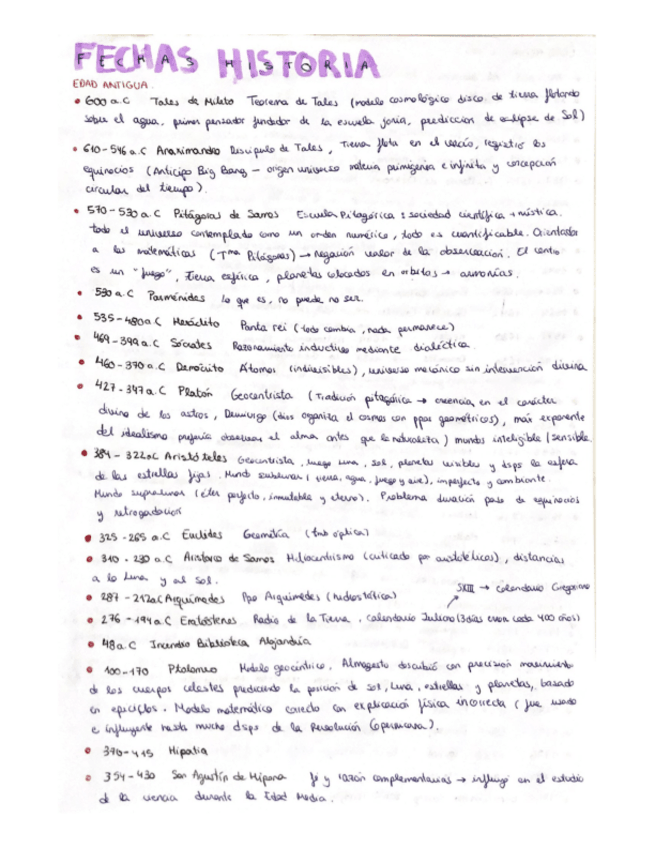 FECHAS HISTORIA
EDAD ANTIGUA.
• 600 a.C Tales de Mileto Teorema de Tales (modelo cosmológico disco de tierra flotando
sobre el agua, primer pensador fundador de la escuela jonia, predicción de eclipse de Sol)
• 610-546 a.C Anaximandro Discípulo de Tales, Tierra flota en el vacío, registro los
equinocios (Anticipo Big Bang - origen universo materia primigenia e infinita y concepción
circular del tiempo).
• 570-530 a.C Pitágoras de Samos Escuela Pitagórica: sociedad científica + mística.
todo el universo contemplado como un orden numérico, todo es cuantificable. Orientador
a las matemáticas (Tma Pitágoras) → negación valor de la observación. El centro
es un "fuego", Tierra esférica, planetas colocados en orbitas → armonías.
• 530 a.C Parménides lo que es, no puede no ser.
• 535-480 a.C Heráclito Panta rei (todo cambia, nada permanece)
• 469-399 a.C Sócrates Razonamiento inductivo mediante dialéctica.
• 460-370 a.C Demócrito Átomos (indivisibles), universo mecánico sin intervención divina
• 427-347 a.C Platón Geocentrista (Tradición pitagórica → creencia en el carácter
divino de los astros, Demiurgo (dios organiza el cosmos con ppos geométricos), max exponente
del idealismo prefería observar el alma antes que la naturaleza) mundos inteligible/sensible.
• 384-322 a.C Aristóteles Geocentrista, luego luna, sol, planetas visibles y dsps la esfera
de las estrellas fijas. Mundo sublunar (tierra, agua, fuego y aire), imperfecto y cambiante.
Mundo supralunar (éter perfecto, inmutable y eterno). Problema duración paso de equinocios
y retrogradación
• 325-265 a.C Euclides Geometría (tmb óptica)
• 310-230 a.C Aristarco de Samos Heliocentrismo (criticado por aristotélicos), distancias
a la luna y al sol.
• 287-212 a.C Arquímedes Ppo Arquímedes (hidrostática) SXIII → calendario Gregoriano
• 276-194 a.C Eratóstenes Radio de la Tierra, calendario Juliano (3 días error cada 400 años)
• 48 a.C Incendio Biblioteca Alejandría
• 100-170 Ptolomeo Modelo geocéntrico. Almagesto descubrió con precisión movimiento
de los cuerpos celestes prediciendo la posición de sol, luna, estrellas y planetas, basado
en epiciclos. Modelo matemático correcto con explicación física incorrecta (fue usado
e influyente hasta mucho dsps de la Revolución Copernicana).
• 370-415 Hipatia
• 354-430 San Agustín de Hipona fe y razón complementarias → influyó en el estudio
de la ciencia durante la Edad Media.